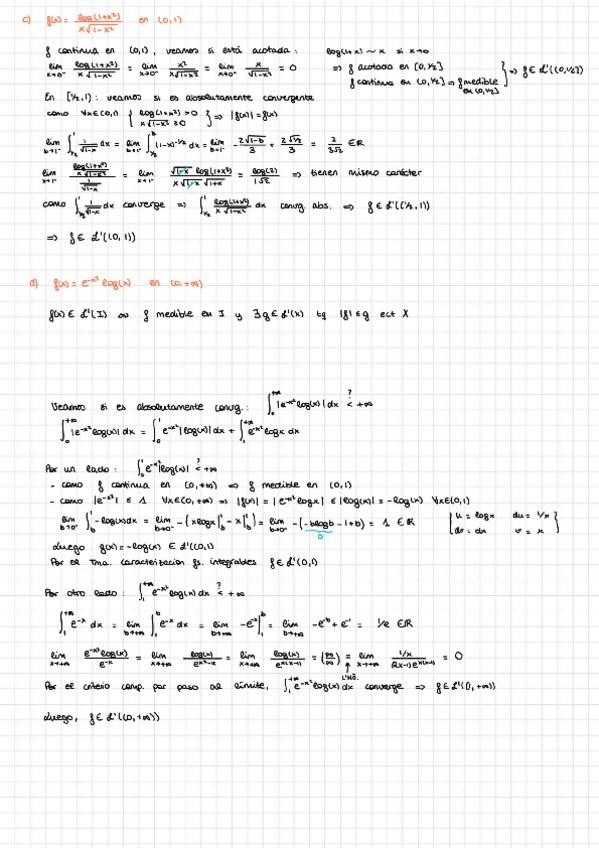 c) f(x) = log(1+x²) / (x√(1-x²)) en (0,1)
f continua en (0,1), veamos si está acotada: log(1+x) ~ x si x→0
lim x→0⁺ log(1+x²) / (x√(1-x²)) = lim x→0⁺ x² / (x√(1-x²)) = lim x→0⁺ x / √(1-x²) = 0 ⇒ f acotada en [0,1/2] f continua en (0,1/2] ⇒ f medible en (0,1/2] } ⇒ f ∈ L¹((0,1/2])
En [1/2,1): veamos si es absolutamente convergente
como ∀x∈(0,1) { log(1+x²) > 0 x√(1-x²) ≥ 0 } ⇒ |f(x)| = f(x)
lim b→1⁻ ∫_{1/2}^{b} 1/√(1-x) dx = lim b→1⁻ ∫_{1/2}^{b} (1-x)^{-1/2} dx = lim b→1⁻ - 2√(1-b)/3 + 2√(1/2)/3 = 2/(3√2) ∈ ℝ
lim x→1⁻ (log(1+x²) / (x√(1-x²))) / (1/√(1-x)) = lim x→1⁻ √(1-x) log(1+x²) / (x√(1-x) √(1+x)) = log(2) / (1√2) ⇒ tienen mismo carácter
como ∫_{1/2}^{1} 1/√(1-x) dx converge ⇒ ∫_{1/2}^{1} log(1+x²) / (x√(1-x²)) dx convg. abs. ⇒ f ∈ L¹([1/2,1))
⇒ f ∈ L¹((0,1))
d) f(x) = e^{-x²} log(x) en (0,+∞)
f(x) ∈ L¹(I) ⇔ f medible en I y ∃g∈L¹(X) tq |f| ≤ g ect X
Veamos si es absolutamente convg.: ∫_0^{+∞} |e^{-x²} log(x)| dx <? +∞
∫_0^{+∞} |e^{-x²} log(x)| dx = ∫_0^1 e^{-x²} |log(x)| dx + ∫_1^{+∞} e^{-x²} logx dx
Por un lado: ∫_0^1 e^{-x²} |log(x)| <? +∞
- como f continua en (0,+∞) ⇒ f medible en (0,1)
- como |e^{-x²}| ≤ 1 ∀x∈(0,+∞) ⇒ |f(x)| = |e^{-x²} logx| ≤ |log(x)| = -log(x) ∀x∈(0,1)
lim b→0⁺ ∫_b^1 -log(x)dx = lim b→0⁺ -(xlogx|_b^1 - x|_b^1) = lim b→0⁺ -(-blogb - 1 + b) = 1 ∈ ℝ { u = logx du = 1/x dv = dx v = x }
0
Luego g(x) = -log(x) ∈ L¹((0,1)
Por el Tma. caracterizacion fs. integrables f ∈ L¹(0,1)
Por otro lado: ∫_1^{+∞} e^{-x²} log(x) dx <? +∞
∫_1^{+∞} e^{-x} dx = lim b→+∞ ∫_1^b e^{-x} dx = lim b→+∞ -e^{-x}|_1^b = lim b→+∞ -e^{-b} + e^{-1} = 1/e ∈ ℝ
lim x→+∞ e^{-x²} log(x) / e^{-x} = lim x→+∞ log(x) / e^{x²-x} = lim x→+∞ log(x) / e^{x(x-1)} = (∞/∞) = lim x→+∞ (1/x) / ((2x-1) e^{x(x-1)}) = 0
L'Hô.
Por el criterio comp. por paso al límite, ∫_1^{+∞} e^{-x²} log(x) dx converge ⇒ f ∈ L¹([1,+∞))
Luego, f ∈ L¹((0,+∞))